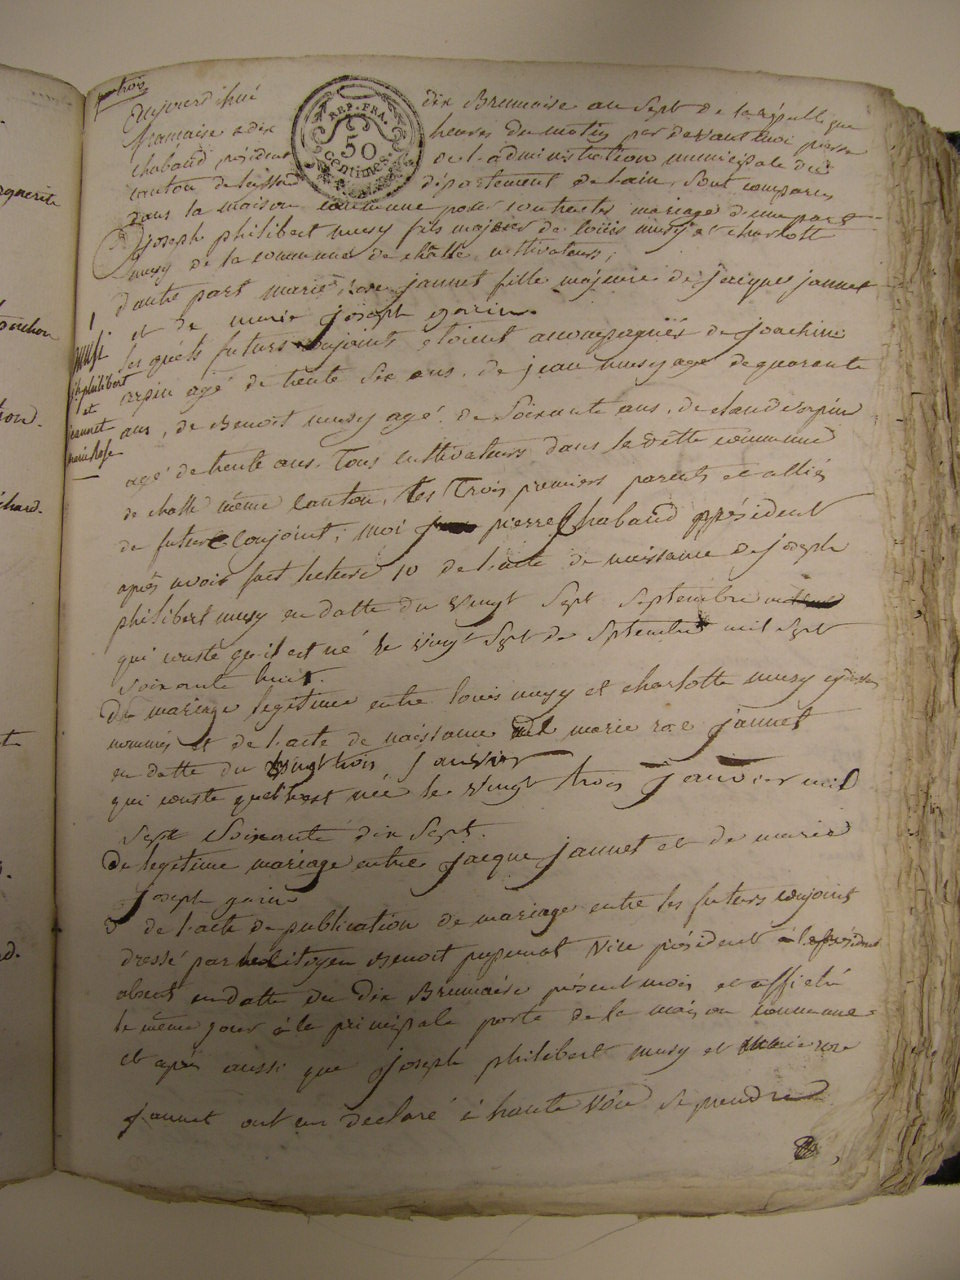 trois
aujourd'hui dix Brumaire an Sept de la république
française a dix heures du matin par devant moi pierre
chabaud président de l'administration municipale du
canton de département de lain, Sont comparus
dans la maison commune pour contracter mariage d'une part
joseph philibert musy fils majeur de louis musy et charlotte
musy de la commune de chatte cultivateurs,
d'autre part marie rose jannet fille majeure de jacques jannet
et de marie joseph garin.
les quels futurs conjoints etoient accompagnés de joachim
crepin agé de trente Six ans, de jean musy agé de quarante
ans, de Benoit musy agé de Soixante ans, de claude crepin
agé de trente ans. Tous cultivateurs dans la ditte commune
de chatte même canton, les Trois premiers parents et alliés
de futurs Conjoint; moi pierre Chabaud président
après avoir fait lecture 1o de l'acte de naissance de joseph
philibert musy en datte du vingt Sept Septembre
qui conste qu'il est né le vingt Sept de Septembre mil Sept
Soixante huit.
Du mariage legitime entre louis musy et charlotte musy cy dessus
nommés et de l'acte de naissance de marie rose jannet
en datte du vingt trois Janvier
qui conste quelle est née le vingt trois janvier mil
Sept Soixante dix Sept.
De legitime mariage entre jacque jannet et de marie
Joseph garin
3 de l'acte de publication de mariage entre les futurs conjoint
dressé par le citoyen Benoit Vice président le président
absent en datte du dix Brumaire présent mois et affiché
le même jour à la principale porte de la maison commune
et après aussi que joseph philibert musy et marie rose
jannet ont eu declaré à haute voix Se prendre
REP. FRA.
50
Centimes.
musi
jh philibert
et
jeannet
marie Rose